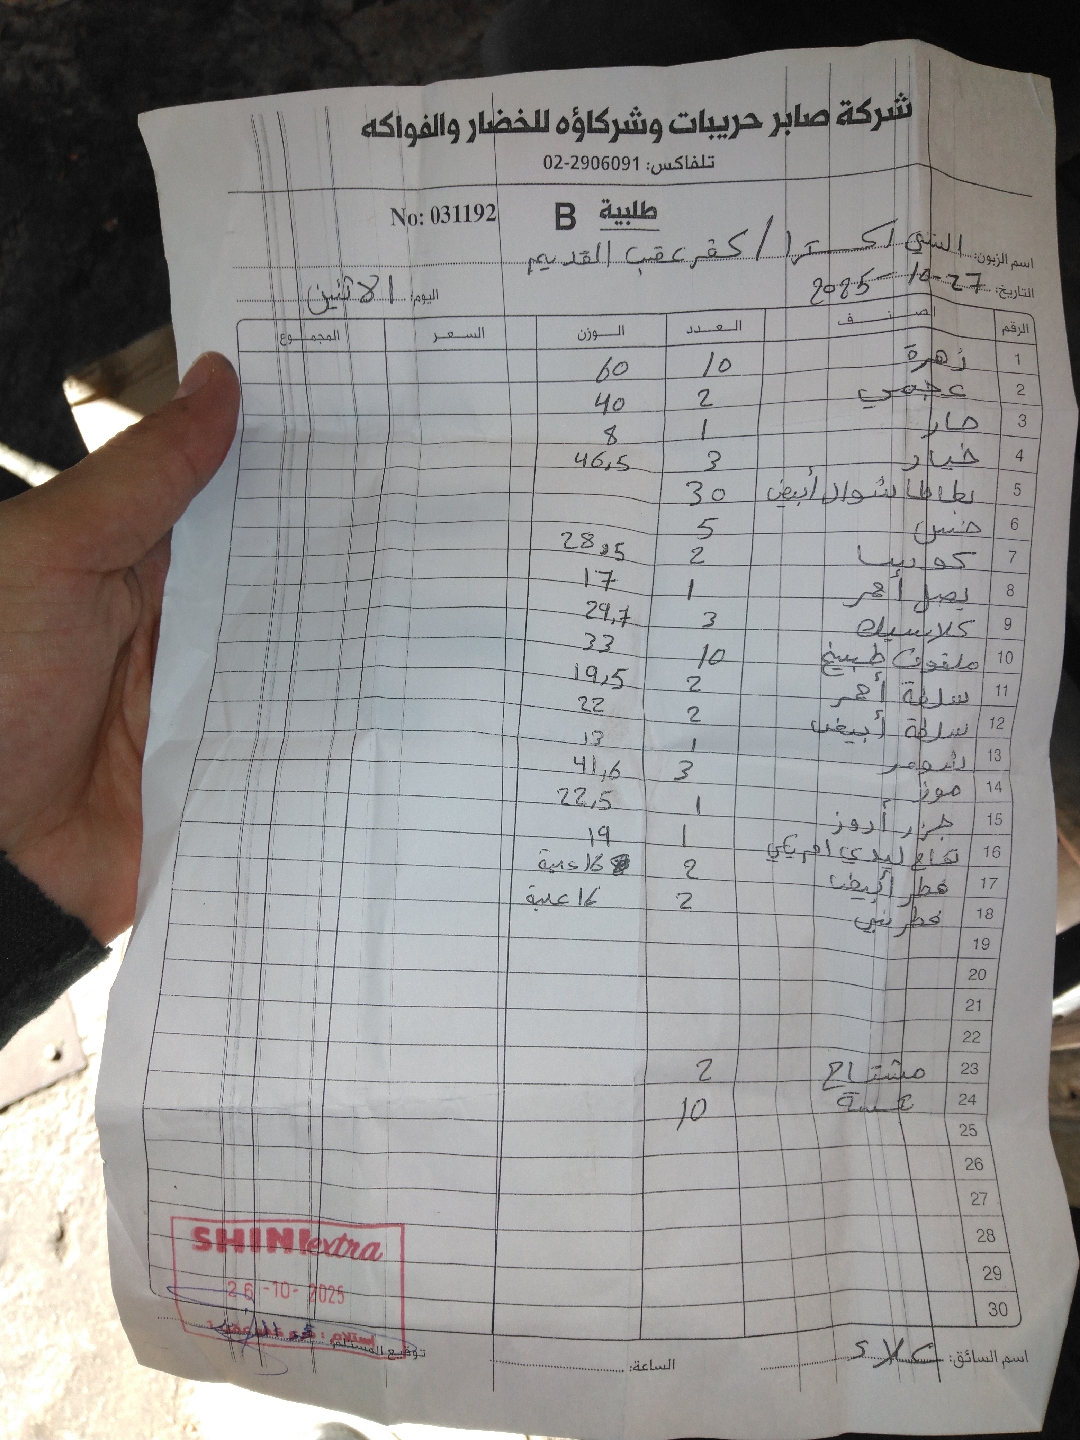 شركة صابر حريبات وشركاؤه للخضار والفواكه
تلفاكس: 02-2906091
طلبية B No: 031192
اسم الزبون: الشني اكسترا / كفر عقب القديم
التاريخ: 27-10-2025 اليوم: الاثنين
الرقم الصنف العدد الوزن السعر المجموع
1 زهرة 10 60
2 عجمي 2 40
3 حار 1 8
4 خيار 3 46,5
5 بطاطا شوال أبيض 30
6 خس 5
7 كوسا 2 28,5
8 بصل أحمر 1 17
9 كلاسيك 3 29,7
10 ملفوف طبيخ 10 33
11 سلطة أحمر 2 19,5
12 سلطة أبيض 2 22
13 شومر 1 13
14 موز 3 41,6
15 جزر أدوز 1 22,5
16 تفاح ليدي امريكي 1 19
17 فطر أبيض 2 16 علبة
18 فطر بني 2 16 علبة
19
20
21
22
23 مشتاح 2
24 10
25
26
27
28
29
30
SHINI extra
26-10-2025
استلام:
اسم السائق: علاء الساعة: توقيع المستلم: